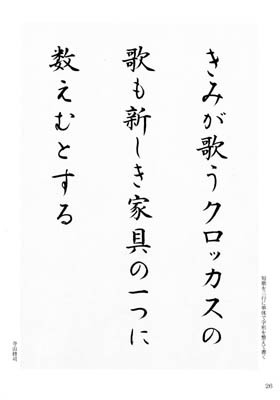 きみが歌うクロッカスの
歌も新しき家具の一つに
数えむとする
寺山修司
短歌を三行に単体で字形を整えて書く
26